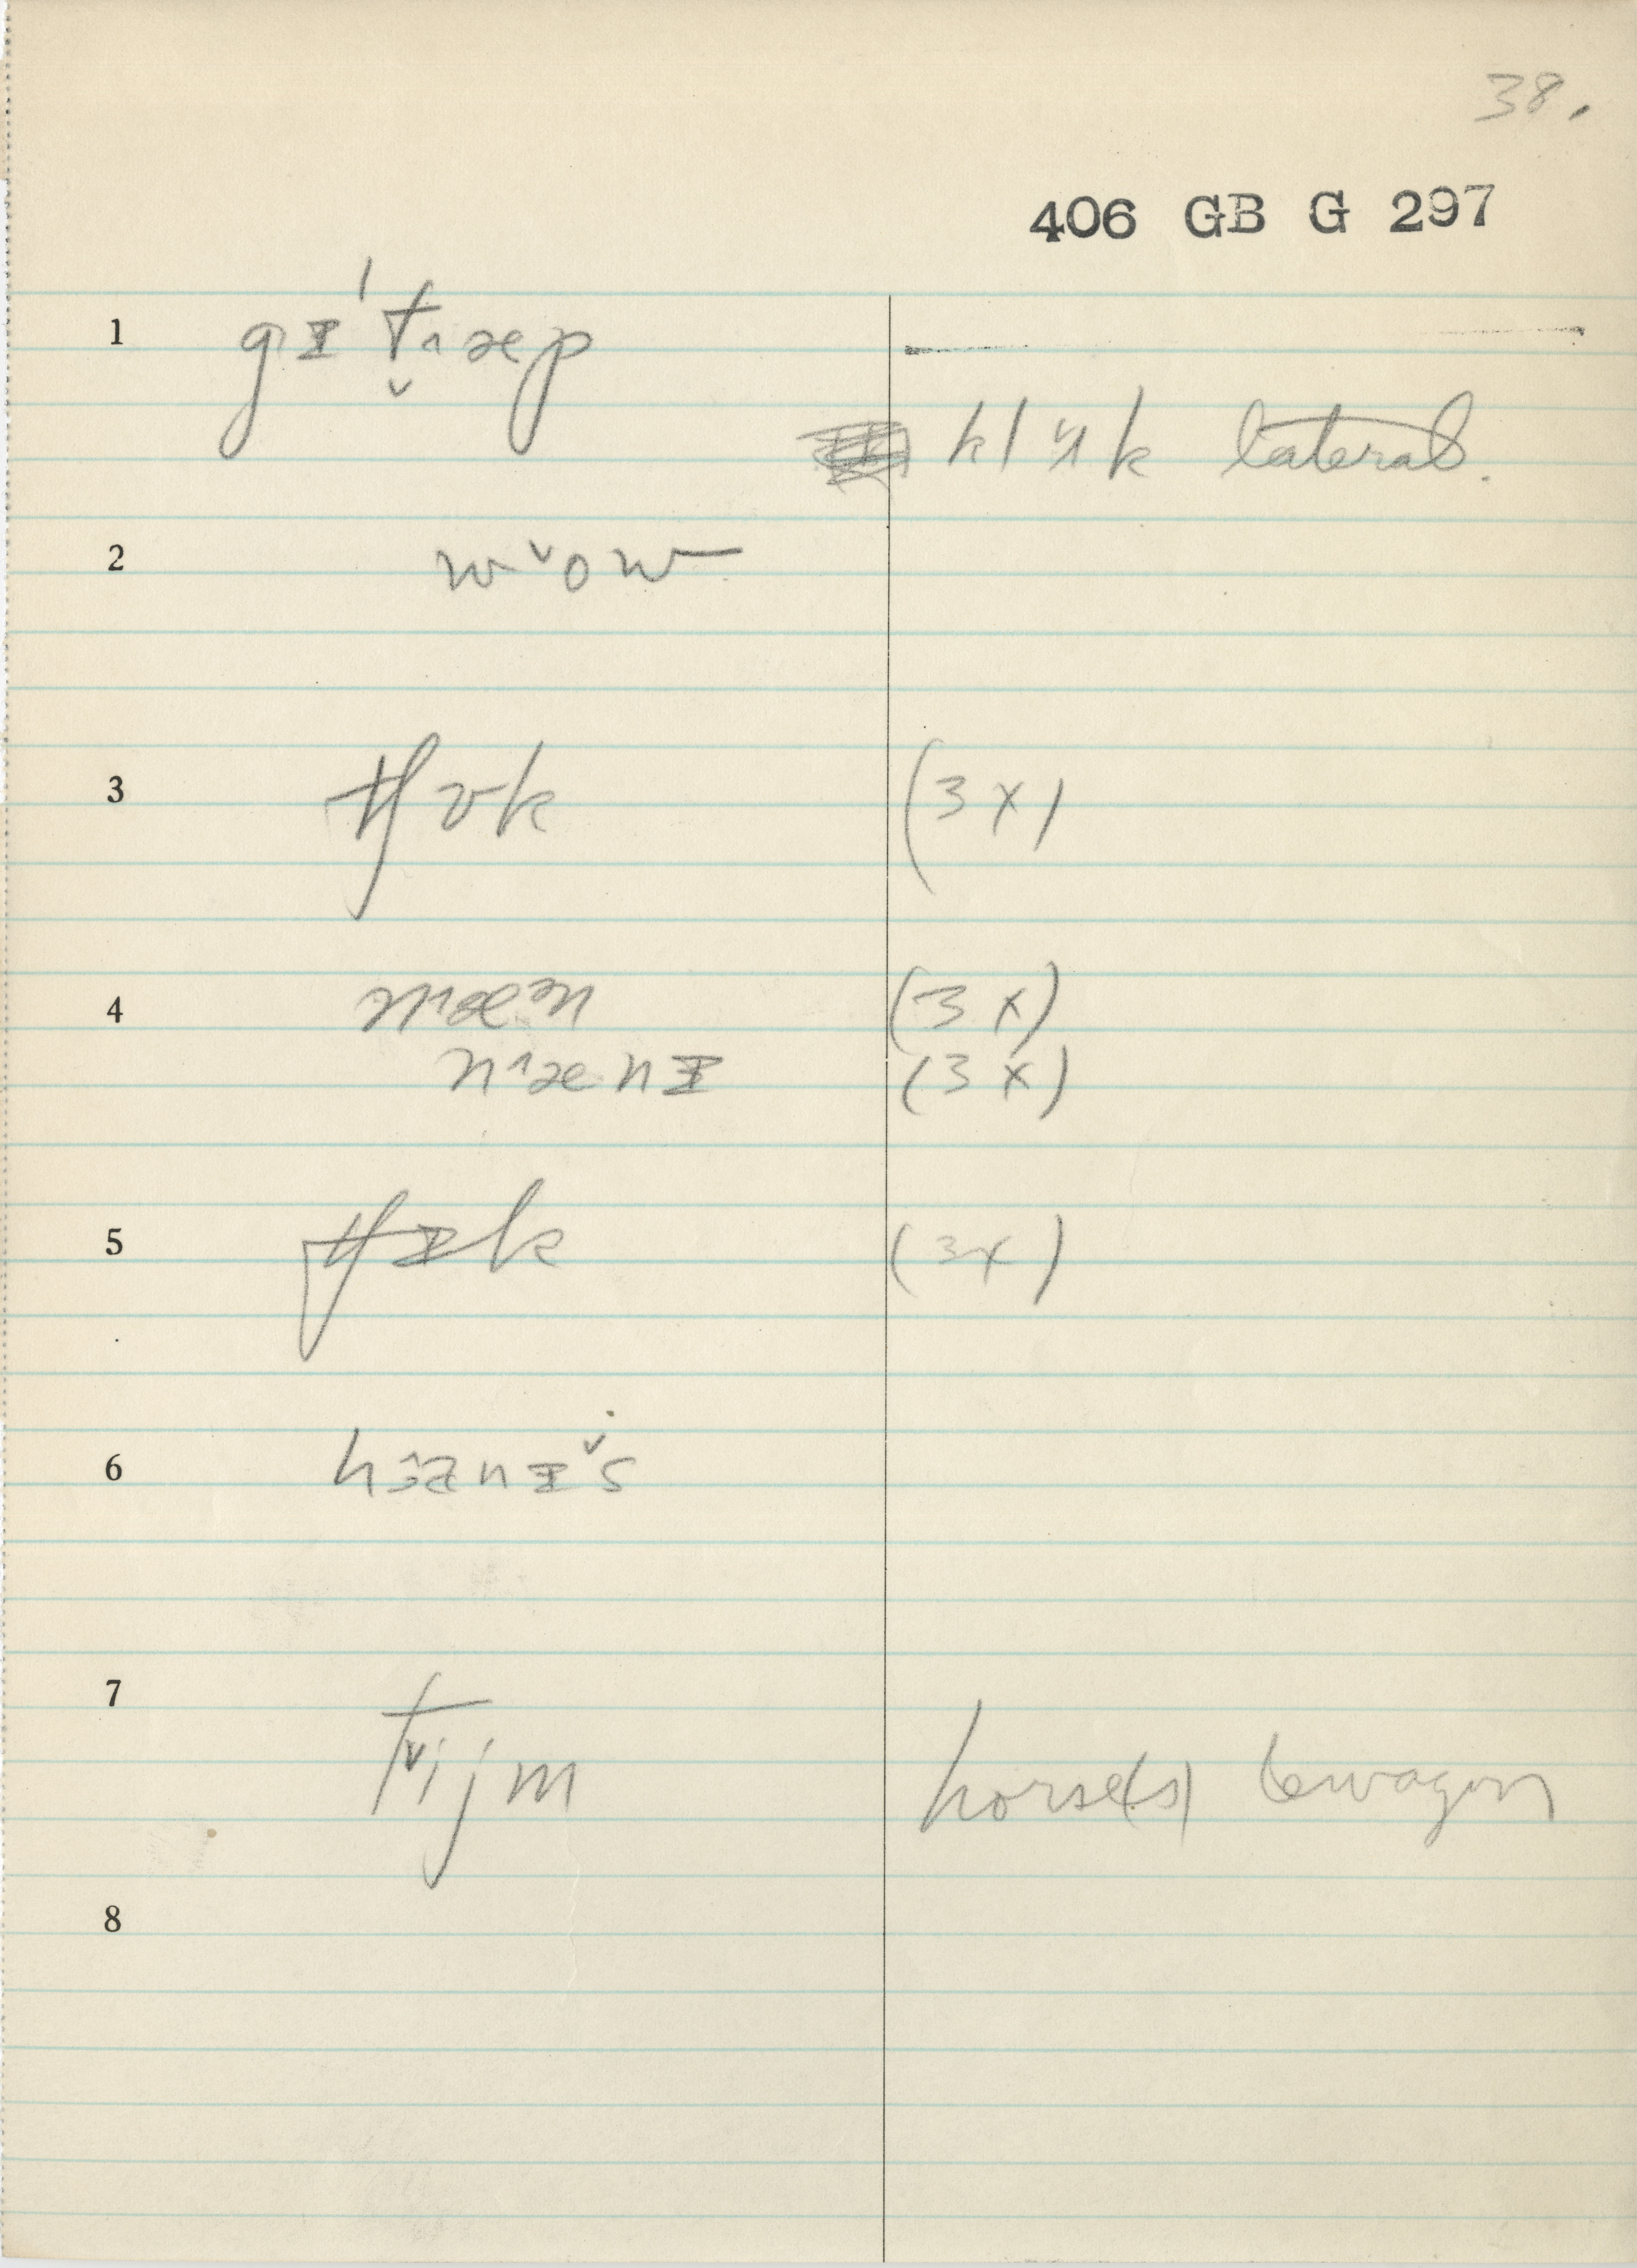 38.
406 GB G 297
1 gɪ 'tˬ˄æp
klɥk lateral.
2 wˇow
3 tʃɒk (3x)
4 n˄æ˒n (3x)
n˄ænɪ (3x)
5 tʃɪk (3x)
6 nɪˇs
7 tˇijm horse(s) & wagon
8